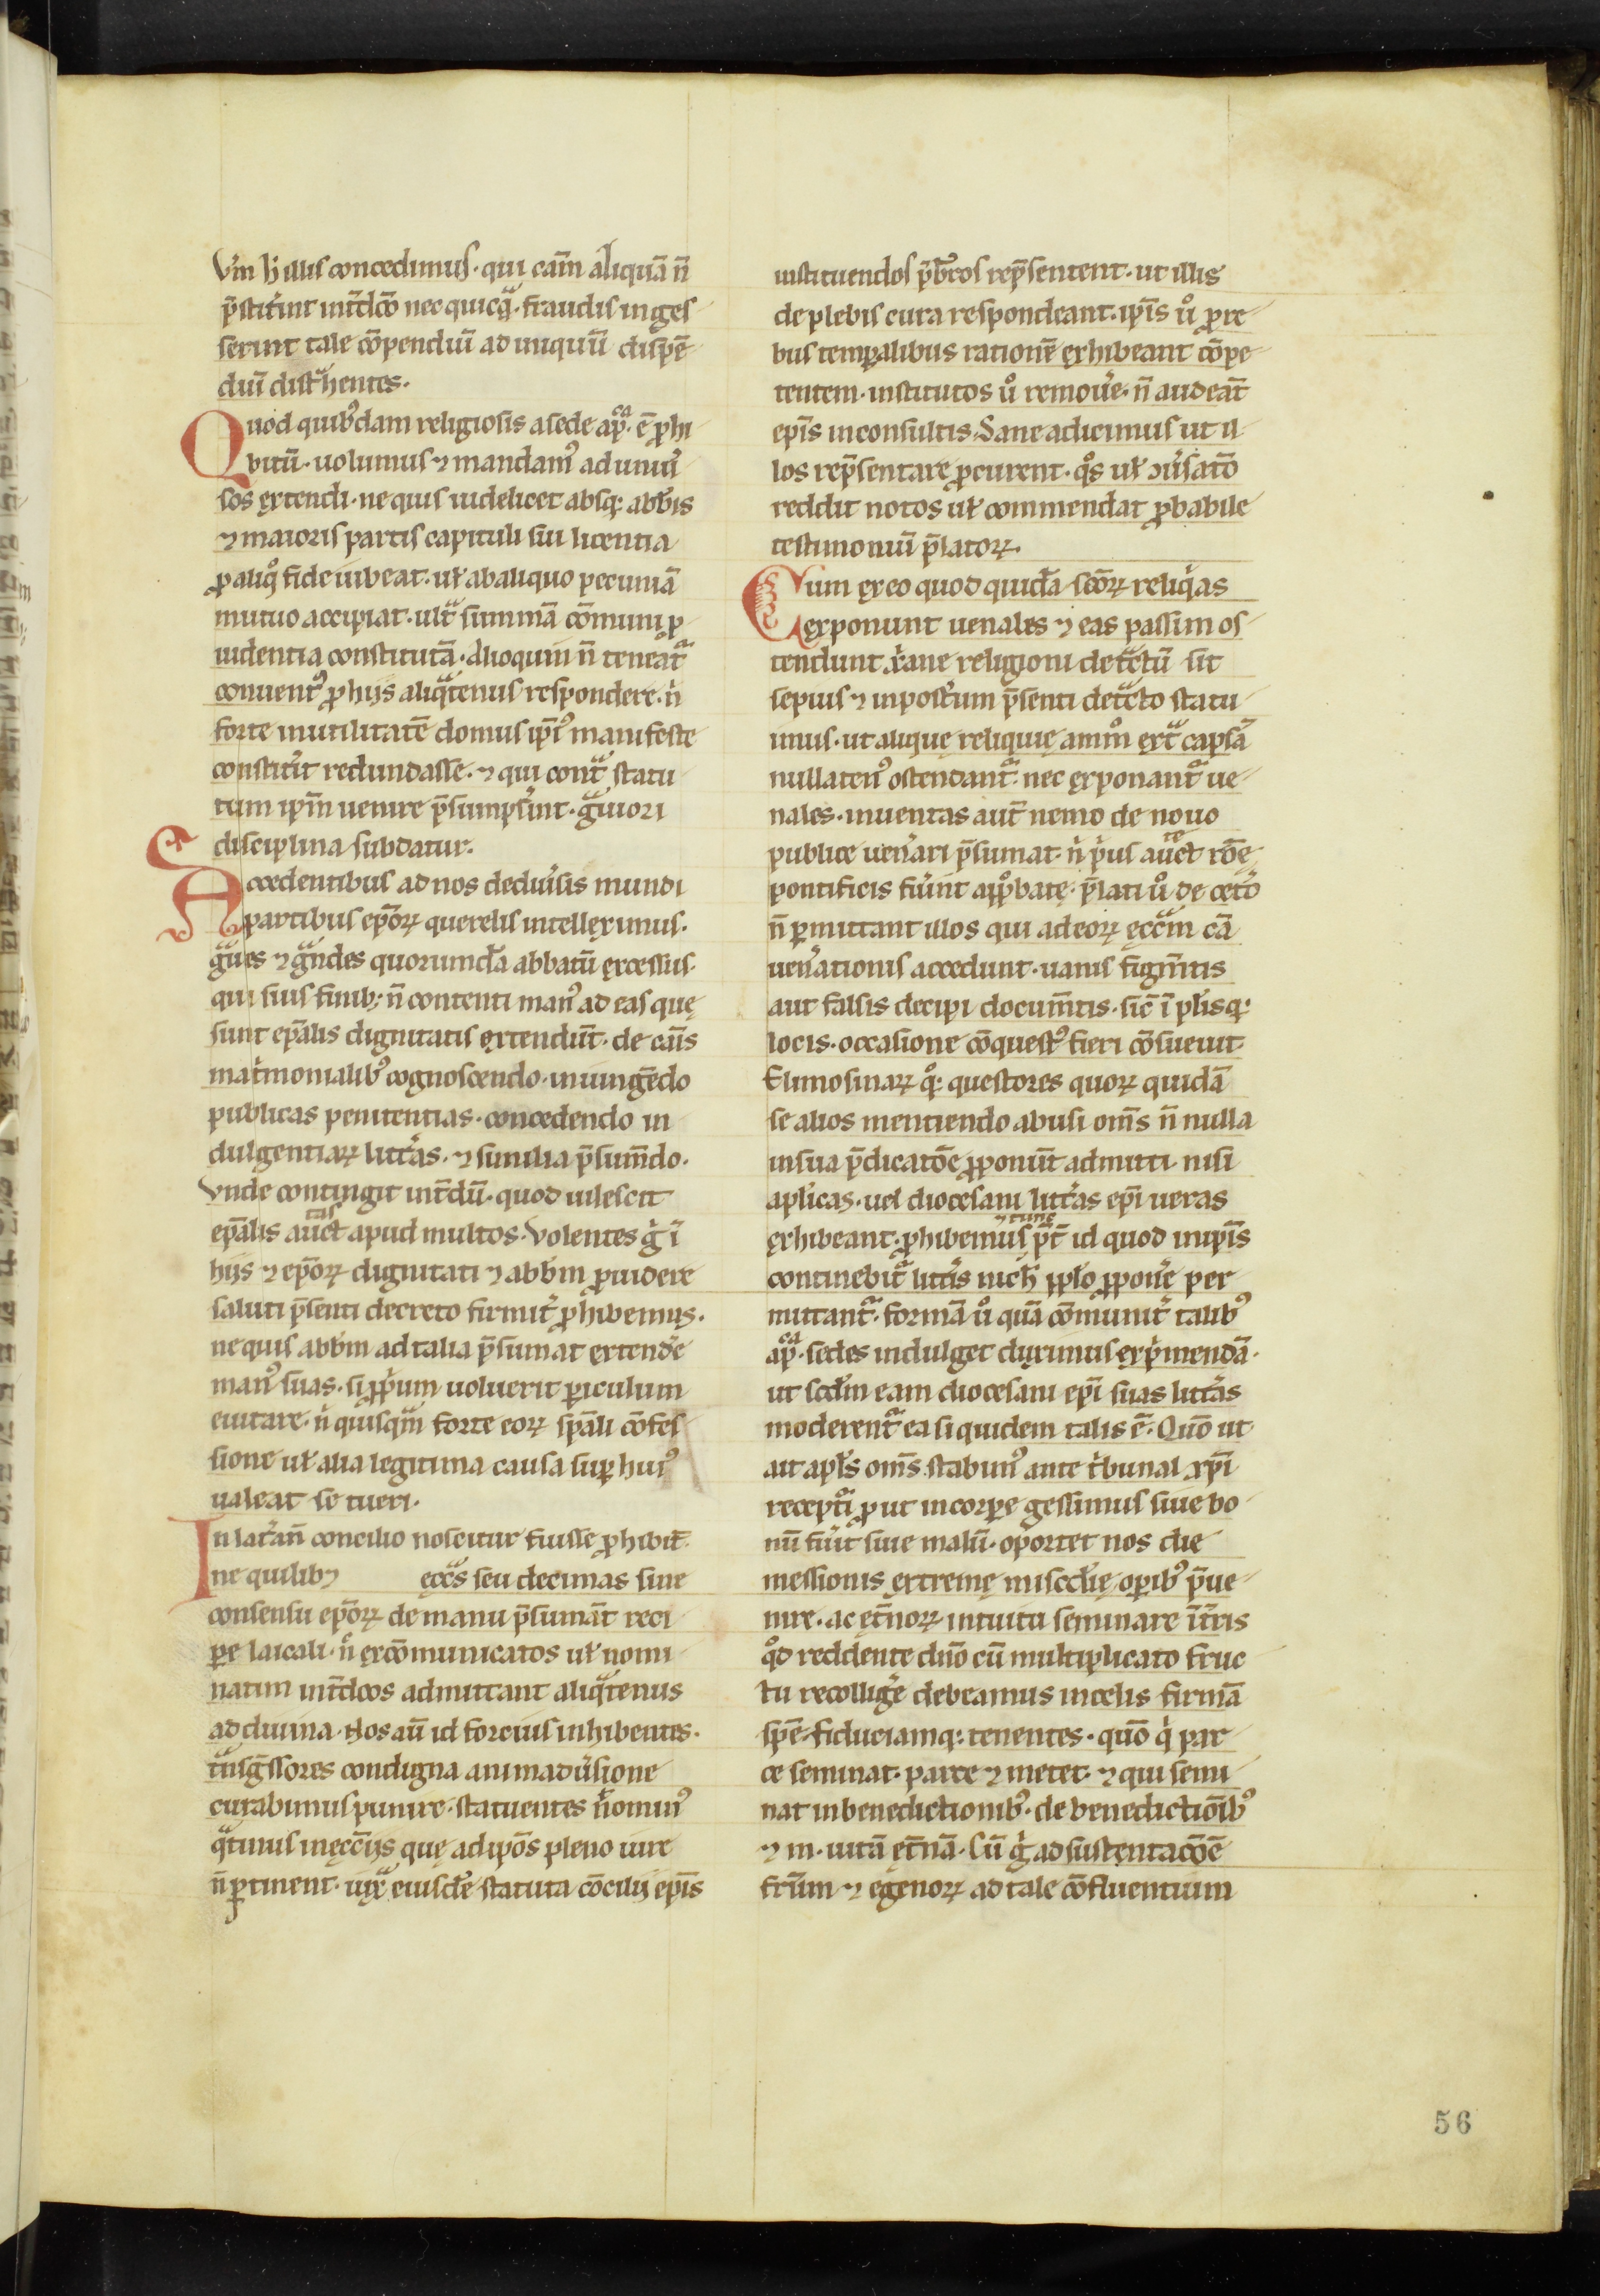 Vm̄ h̄ illis concedimus · qui cām aliquā n̄
p̄stit̾int int̾dc̄o nec quicq̃ · fraudis inges
serint tale cōpendiū ad iniquū dispē
diū dist̾hentes ·
Quod quib᾽dam religiosis a sede ap̄ca · ē ꝓhi
bitū · uolumus ⁊ mandam᾽ ad uniu᾽
sos extendi · ne quis uidelicet absq; abb̄is
⁊ maioris partis capituli sui licentia
ꝓ aliq̊ fide iubeat · uł ab aliquo pecuniā
mutuo accipiat · ult̃ summā cōmuni ꝓ
uidentia constitutā · alioquin n̄ teneat̃
conuent᾽ ꝓ hijs aliq̃tenus respondere · n̾
forte in utilitatē domus ip̄i᾽ manifeste
constit̾it redundasse · ⁊ qui cont̃ statu
tum ip̄m uenire p̄sumps̾int · g̃uiori
disciplina subdatur ·
Accedentibus ad nos de diu̾sis mundi
partibus ep̄oꝝ querelis intelleximus ·
g̃ues ⁊ g̃ndes quorumdā abbatū excessus ·
qui suis finib; n̄ contenti man᾽ ad eas quę
sunt ep̄alis dignitatis extendūt · de cāis
mat̾monialib᾽ cognoscendo · iniungēdo
publicas penitentias · concedendo in
dulgentiaꝝ litt̾as · ⁊ similia p̄sum̄do ·
Vnde contingit int̾dū · quod uilescit
ep̄alis auct̃tas apud multos · Volentes g̾ ī
hijs ⁊ ep̄oꝝ dignitati ⁊ abb̄m ꝓuidere
saluti p̄senti decreto firmit̾ ꝓhibemus ·
ne quis abb̄m ad talia p̄sumat extend̾e
man᾽ suas · si ꝓp̾um uoluerit ꝑiculum
euitare · n̾ quisq̃m forte eoꝝ sp̄ali cōfes
sione uł alia legitima causa suꝑ hui᾽
ualeat se tueri ·
In lat̾an̄ concilio noscitur fuisse ꝓhibit̄
ne quilib⁊ ecc̄s seu decimas siue
consensu ep̄oꝝ de manu p̄sumāt reci
ꝑe laicali · n̾ excōmunicatos uł nomi
natim int̾dc̄os admittant aliq̃tenus
ad diuina · Nos aū id forcius inhibentes ·
t̃nsg̃ssores condigna animadu̾sione
curabimus punire · statuentes n̾omin᾽
q̃tinus in ęcc̄ijs quę ad ip̄os pleno iure
n̄ ꝑtinent · iux̃ eiusdē statuta cōcilij ep̄is
instituendos p̄sb̄ros rep̄sentent · ut illis
de plebis cura respondeant · ip̄is u̾o ꝓ re
bus temꝑalibus rationē exhibeant cōpe
tentem · institutos u̾o remou̾e · n̄ audeāt
ep̄is inconsultis · Sane adicimus ut il
los rep̄sentare ꝓcurent · q̊s uł ɔu̾satō
reddit notos uł commendat ꝓbabile
testimoniū p̄latoꝝ ·
Cum ex eo quod quidā sc̄oꝝ reliq̾as
exponunt uenales ⁊ eas passim os
tendunt xr̄ane religioni det̃ctū sit
sepius ⁊ in post̾um p̄senti decreto statu
imus · ut alique reliquię am̊ ext̃ capsā
nullaten᾽ ostendant̃ · nec exponant̃ ue
nales · inuentas aut̄ nemo de nouo
publice uen̾ari p̄sumat · n̾ p̾us auct̃te rōe
pontificis fu̾int apꝓbatę · p̄lati u̾o de cet̾o
n̄ ꝑmittant illos qui ad eoꝝ ęcc̄m cā
uen̾ationis accedunt · uanis figm̄tis
aut falsis decipi docum̄tis · sic̄ ī pl̾isq;
locis · occasione cōquest᾽ fieri cōsueuit
Elimosinaꝝ q̊; questores quoꝝ quidā
se alios mentiendo abusi om̄s n̄ nulla
in sua p̄dicatōe ꝓponūt admitti nisi
aplicas · uel diocesani litt̾as ep̄i ueras
exhibeant · ꝓhibemus ⁊ tunc p̄t̄ id quod in ip̄is
continebit̃ litt̾is nich̄ pplo ꝓpon̾e per
mittant̃ · formā u̾o quā cōmunit̾ talib᾽
ap̄ca · sedes indulget duximus exp̾mendā ·
ut scd̄m eam diocesani ep̄i suas litt̾as
moderent̃ ea si quidem talis ē · Quō ut
ait apl̄s om̄s stabim᾽ ante t̾bunal xp̄i
recept̾i ꝓ ut in corpore gessimus siue bo
nū fu̾it siue malū · oportet nos die
messionis extremę misc̄die oꝑib᾽ p̄ue
nire · ac et̾noꝝ intuitu seminare ī t̾ris
q̊d reddente dn̄o cū multiplicato fruc
tu recollig̾e debeamus in celis firmā
spē fiduciamq; tenentes · quō q̾ par
ce seminat parce ⁊ metet · ⁊ qui semi
nat in benedictionib᾽ · de benedictiōib᾽
⁊ m · uitā et̾nā · Cū g̾ ad sustentacōe
fr̄um ⁊ egenoꝝ ad tale cōfluentium
56